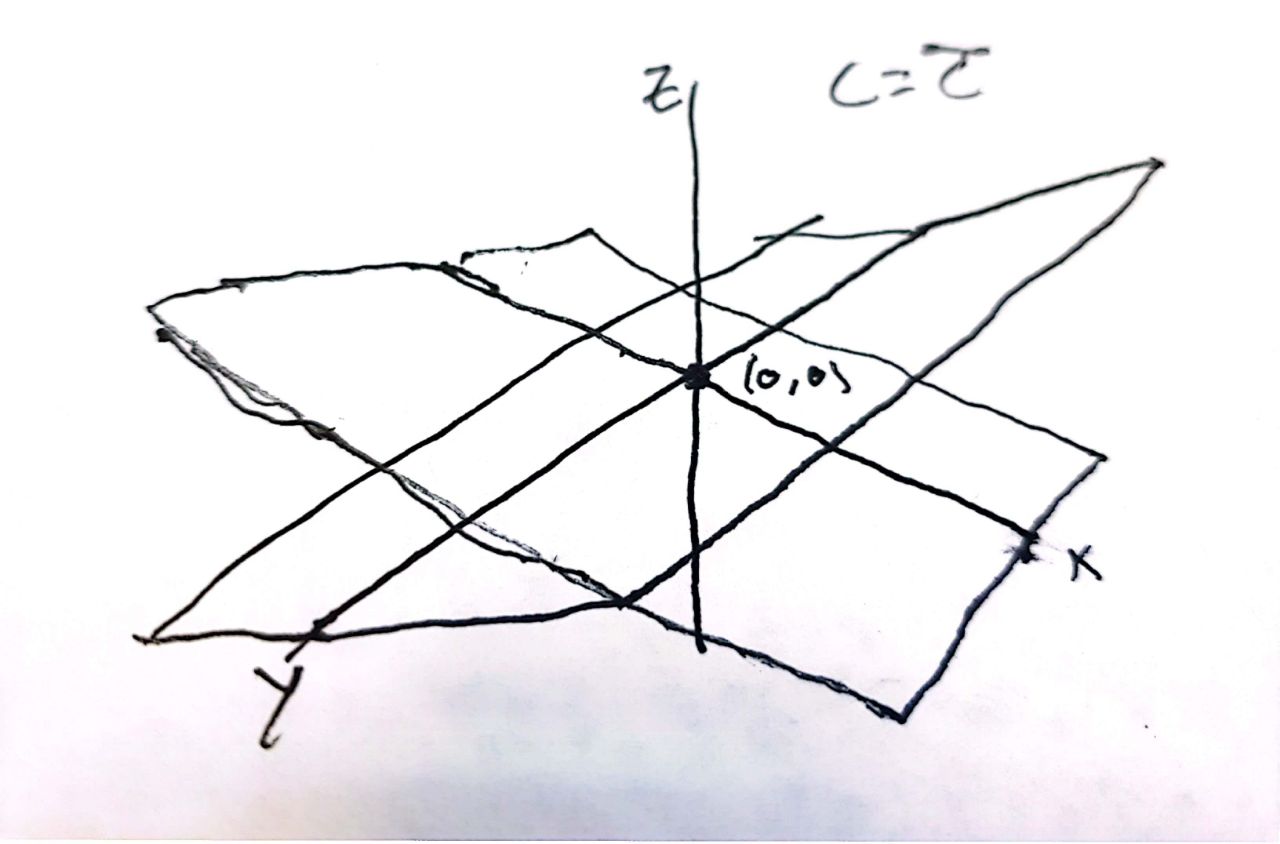 Z
C = C̅
(0,0)
X
Y